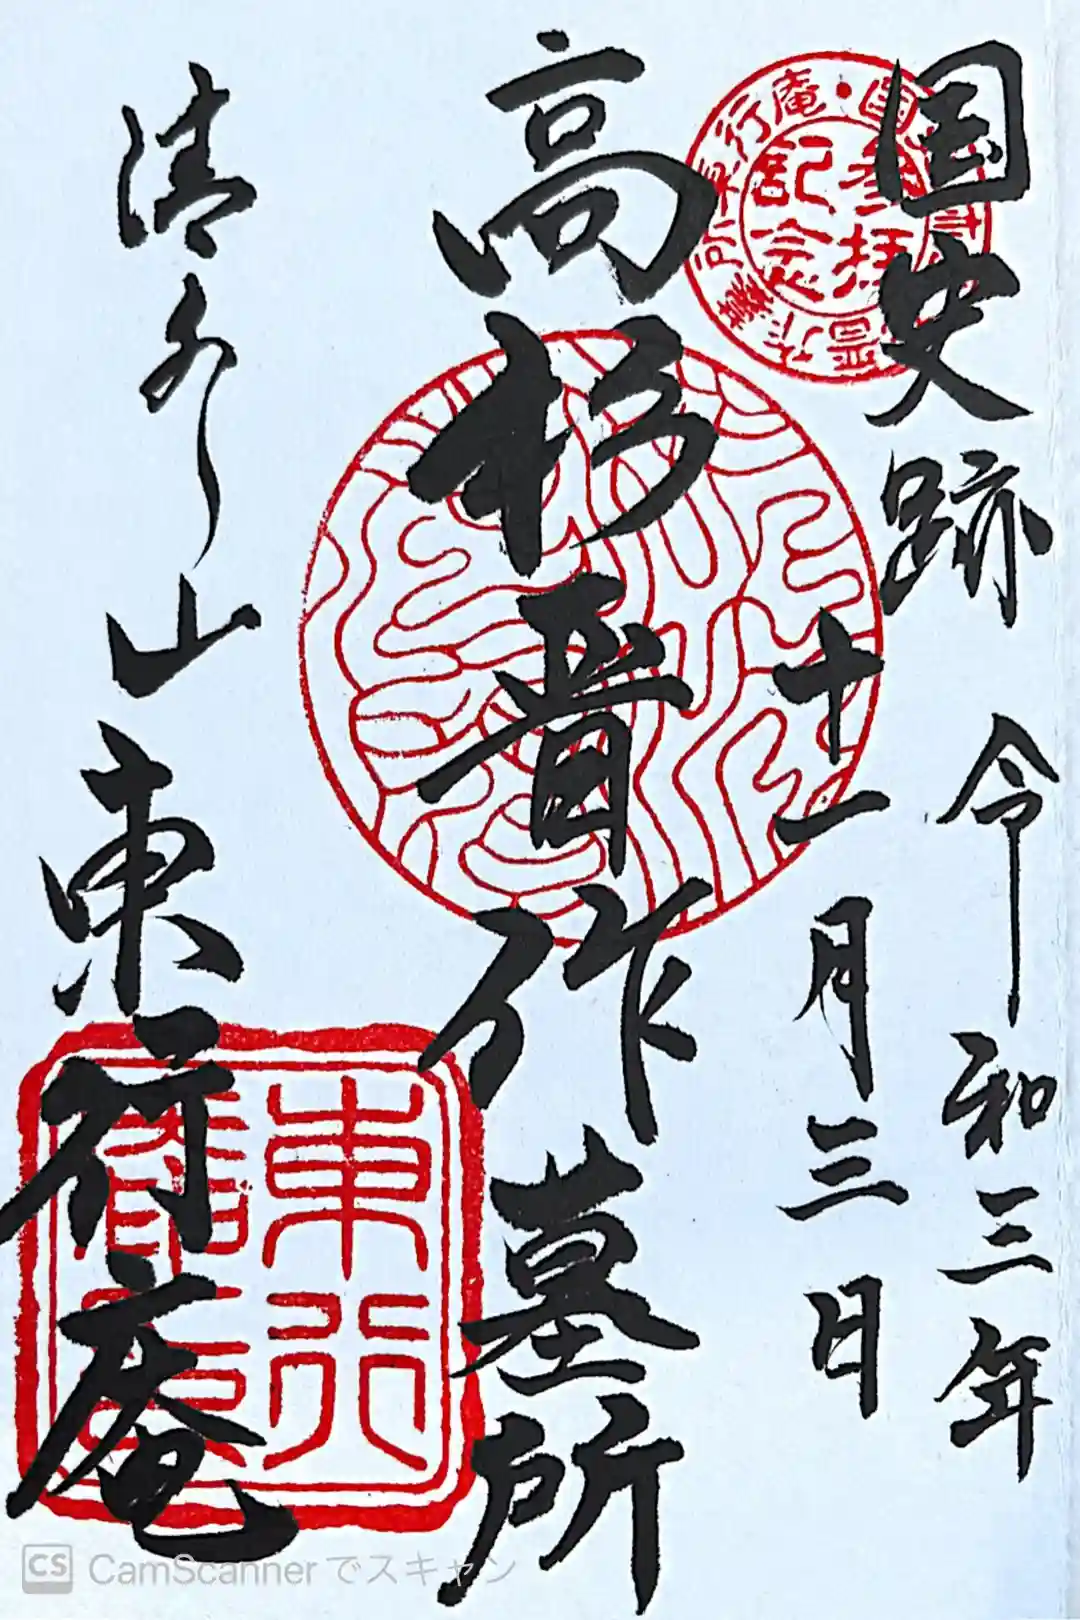 国史跡
令和三年
十一月三日
高杉晋作墓所
清水山
東行庵
参拝
記念
東行
CS CamScannerでスキャン